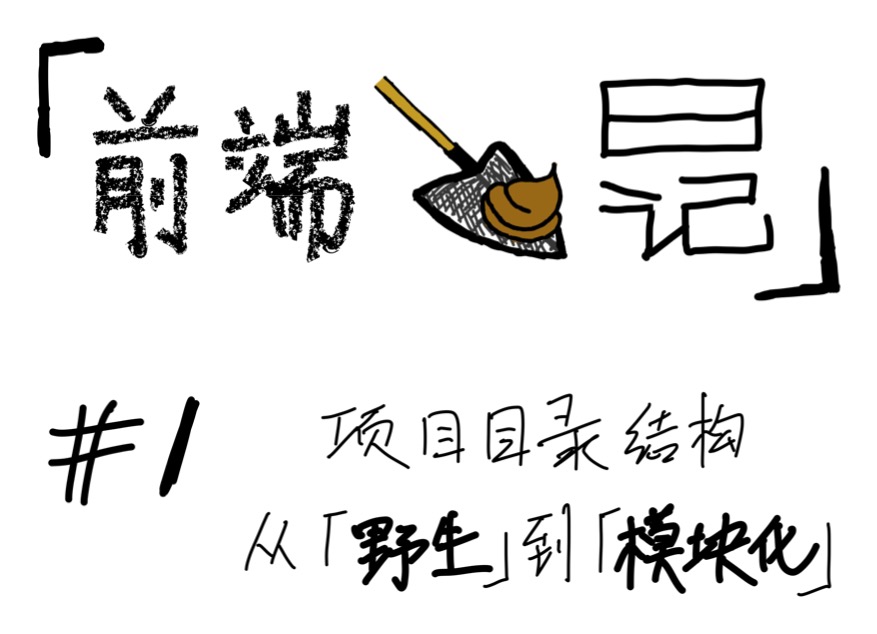 「前端日记」
#1 项目目录结构
从「野生」到「模块化」